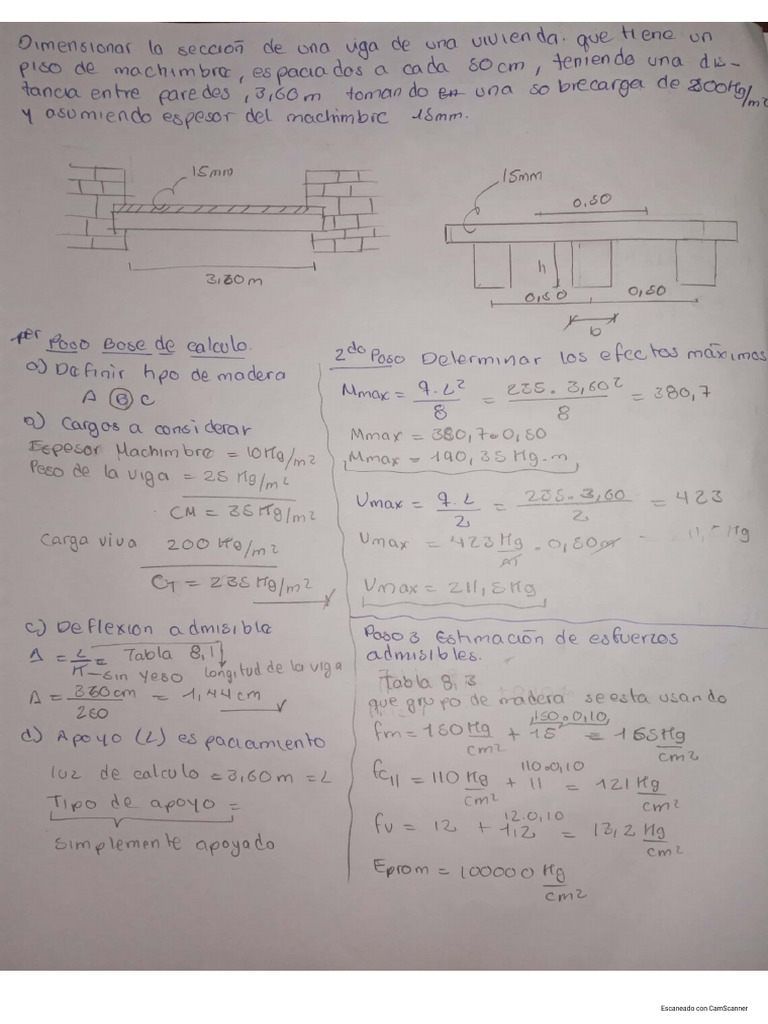 Dimensionar la sección de una viga de una vivienda. que tiene un
piso de machimbre, espaciados a cada 50cm, teniendo una dis-
tancia entre paredes, 3,60m tomando una sobrecarga de 200Kg/m²
y asumiendo espesor del machimbre 15mm.
15mm
3,60m
15mm
0,50
h
0,50 0,50
b
per Paso Base de calculo.
a) Definir tipo de madera
A B C
a) Cargas a considerar
Espesor Machimbre = 10Kg/m²
Peso de la viga = 25Kg/m²
CM = 35Kg/m²
Carga viva 200Kg/m²
CT = 235Kg/m²
c) Deflexion admisible
Δ = L/K = Tabla 8,1
sin yeso longitud de la viga
Δ = 360cm/250 = 1,44cm
d) Apoyo (L) espaciamiento
luz de calculo = 3,60m = L
Tipo de apoyo =
Simplemente apoyado
2do Paso Determinar los efectos máximos
Mmax = q.L²/8 = 235.3,60²/8 = 380,7
Mmax = 380,7.0,50
Mmax = 190,35Kg.m
Vmax = q.L/2 = 235.3,60/2 = 423
Vmax = 423Kg/m . 0,50m
Vmax = 211,5Kg
Paso 3 Estimación de esfuerzos
admisibles.
Tabla 8,3
que grupo de madera se esta usando
150.0,10
fm = 150Kg/cm² + 15 = 165Kg/cm²
110.0,10
fc11 = 110Kg/cm² + 11 = 121Kg/cm²
12.0,10
fv = 12 + 1,2 = 13,2Kg/cm²
Eprom = 100000Kg/cm²
Escaneado con CamScanner